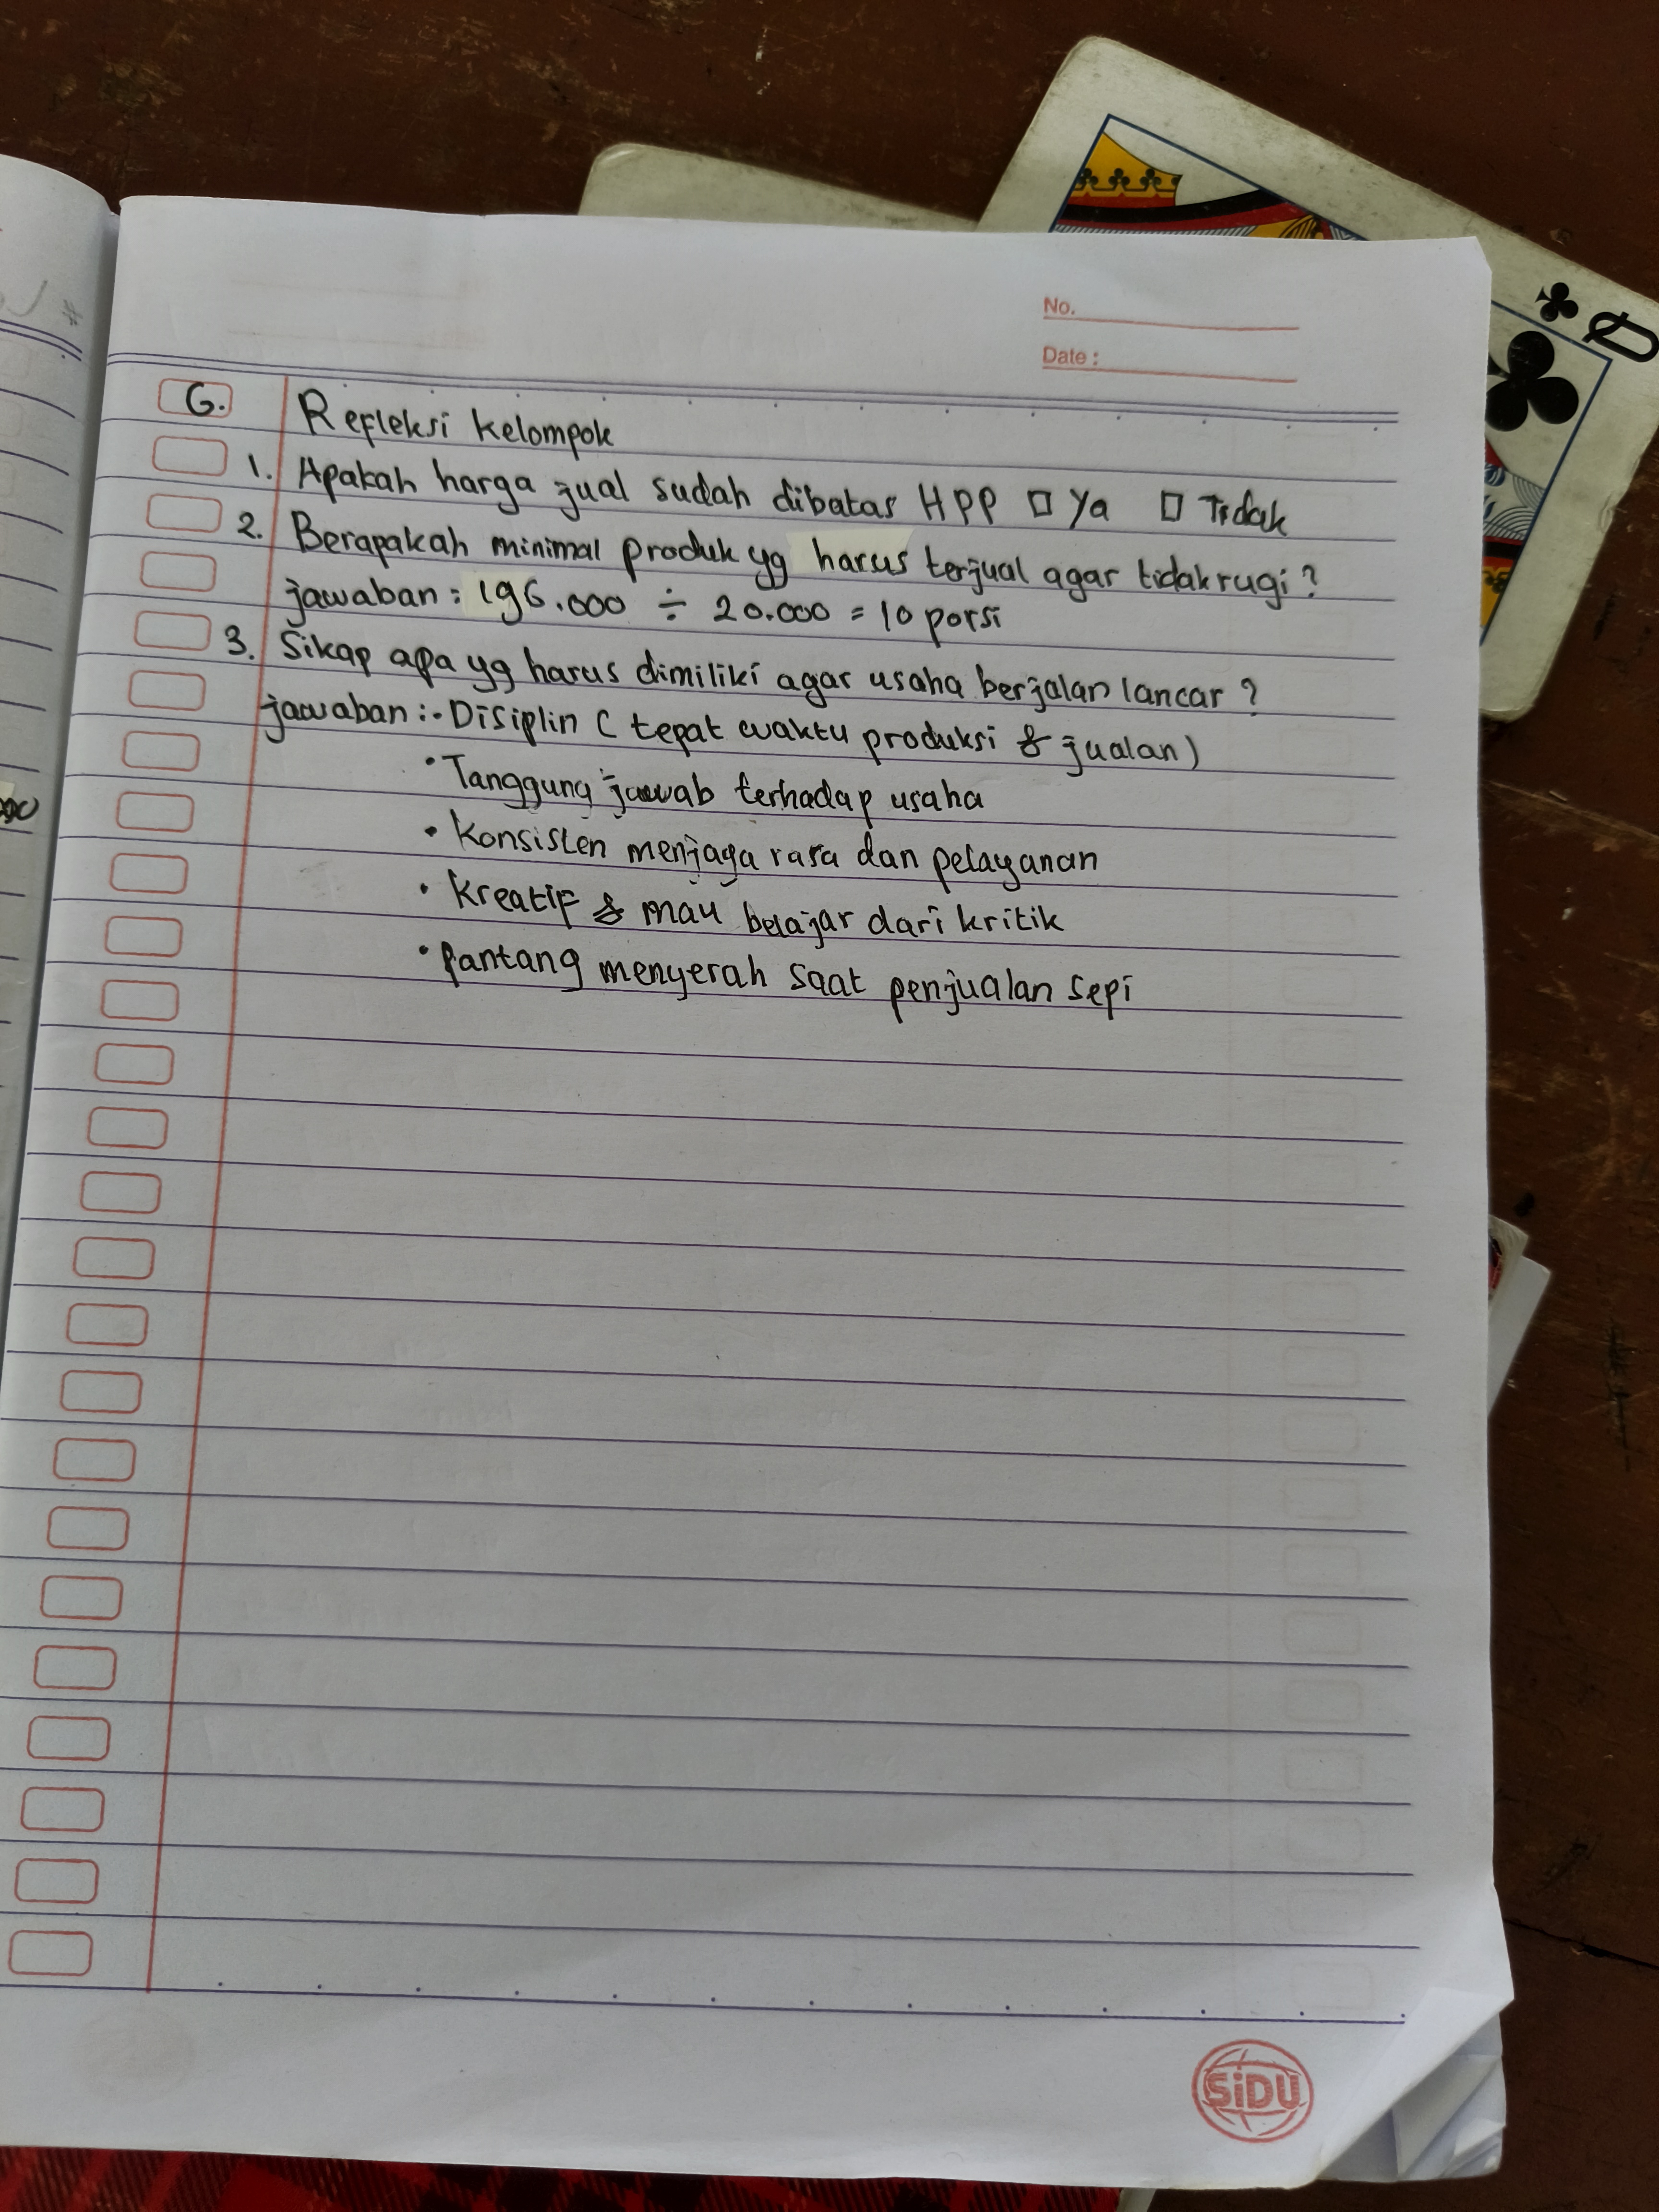 No.
Date :
G. Refleksi Kelompok
1. Apakah harga jual sudah dibatas HPP □ Ya □ Tidak
2. Berapakah minimal produk yg harus terjual agar tidak rugi?
jawaban : 196.000 ÷ 20.000 = 10 porsi
3. Sikap apa yg harus dimiliki agar usaha berjalan lancar ?
jawaban :• Disiplin ( tepat waktu produksi & jualan )
• Tanggung jawab terhadap usaha
• Konsisten menjaga rasa dan pelayanan
• Kreatif & mau belajar dari kritik
• Pantang menyerah saat penjualan sepi
SiDU
Q